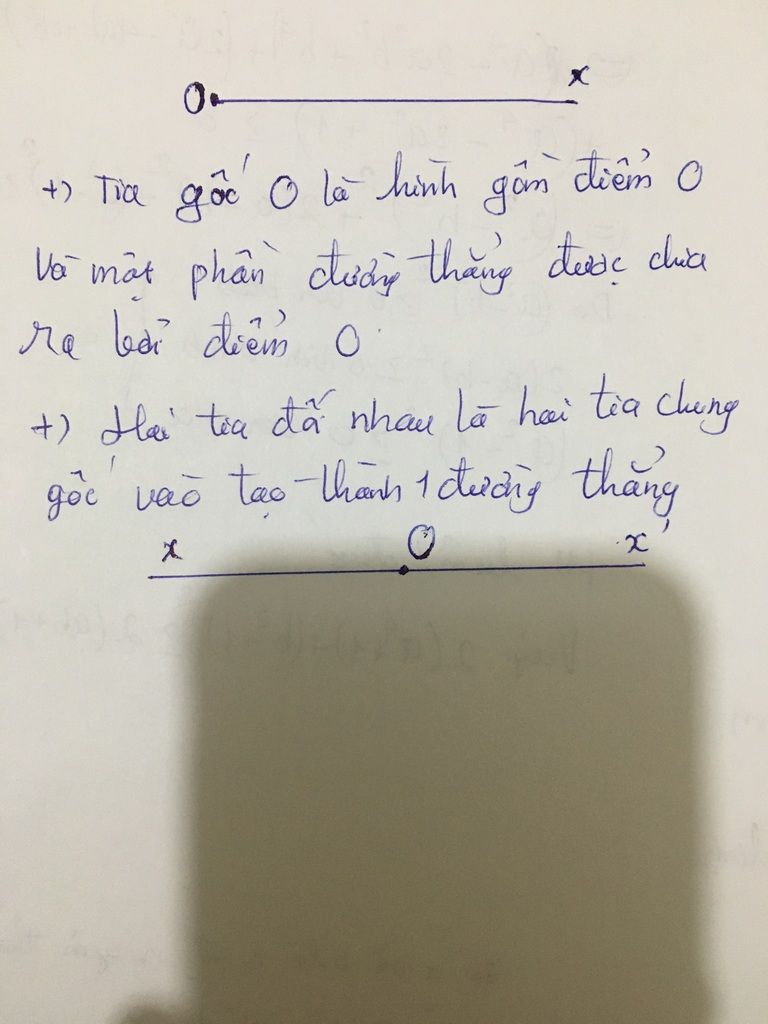 O x
+) Tia gốc O là hình gồm điểm O
Và một phần đường thẳng được chia
ra bởi điểm O.
+) Hai tia đối nhau là hai tia chung
gốc và tạo thành 1 đường thẳng
x O x'